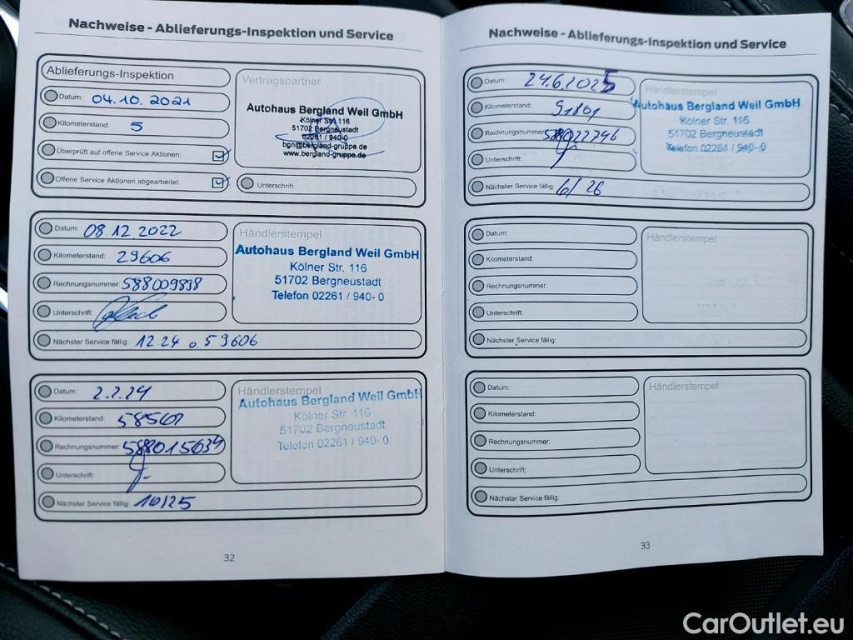 Nachweise - Ablieferungs-Inspektion und Service
Ablieferungs-Inspektion
Datum: 04.10.2021
Kilometerstand: 5
Überprüft auf offene Service Aktionen:
Offene Service Aktionen abgearbeitet:
Vertragspartner
Autohaus Bergland Weil GmbH
Kölner Str. 116
51702 Bergneustadt
02261 / 940-0
bgn@bergland-gruppe.de
www.bergland-gruppe.de
Unterschrift:
Datum: 08.12.2022
Kilometerstand: 29606
Rechnungsnummer: 588009898
Unterschrift:
Nächster Service fällig: 12 24 o. 59606
Händlerstempel
Autohaus Bergland Weil GmbH
Kölner Str. 116
51702 Bergneustadt
Telefon 02261 / 940- 0
Datum: 2.2.24
Kilometerstand:
Rechnungsnummer: 588015634
Unterschrift:
Nächster Service fällig: 10/25
Händlerstempel
Autohaus Bergland Weil GmbH
Kölner Str. 116
51702 Bergneustadt
Telefon 02261 / 940- 0
32
Nachweise - Ablieferungs-Inspektion und Service
Datum: 24.6.2025
Kilometerstand: 91801
Rechnungsnummer: 588022746
Unterschrift:
Nächster Service fällig: 6/26
Händlerstempel
Autohaus Bergland Weil GmbH
Kölner Str. 116
51702 Bergneustadt
Telefon 02261 / 940- 0
Datum:
Kilometerstand:
Rechnungsnummer:
Unterschrift:
Nächster Service fällig:
Händlerstempel
Datum:
Kilometerstand:
Rechnungsnummer:
Unterschrift:
Nächster Service fällig:
Händlerstempel
33
CarOutlet.eu